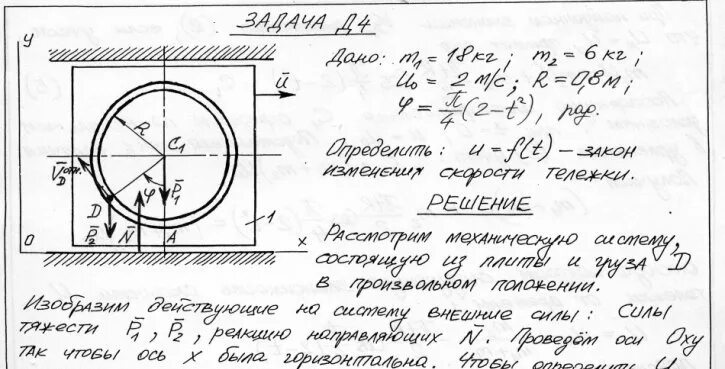 ЗАДАЧА Д4
Дано: m₁ = 18 кг ; m₂ = 6 кг ;
U₀ = 2 м/с ; R = 0,8 м ;
φ = π/4 (2 - t²), рад.
Определить: u = f(t) – закон
изменения скорости тележки.
РЕШЕНИЕ
Рассмотрим механическую систему,
состоящую из плиты и груза D
в произвольном положении.
y
ū
R
C₁
V̄D отн.
φ
P̄₁
D
P̄₂
N̄
A
1
O
x
Изобразим действующие на систему внешние силы: силы
тяжести P̄₁, P̄₂, реакцию направляющих N̄. Проведём оси Oxy
так чтобы ось x была горизонтальна. Чтобы определить U